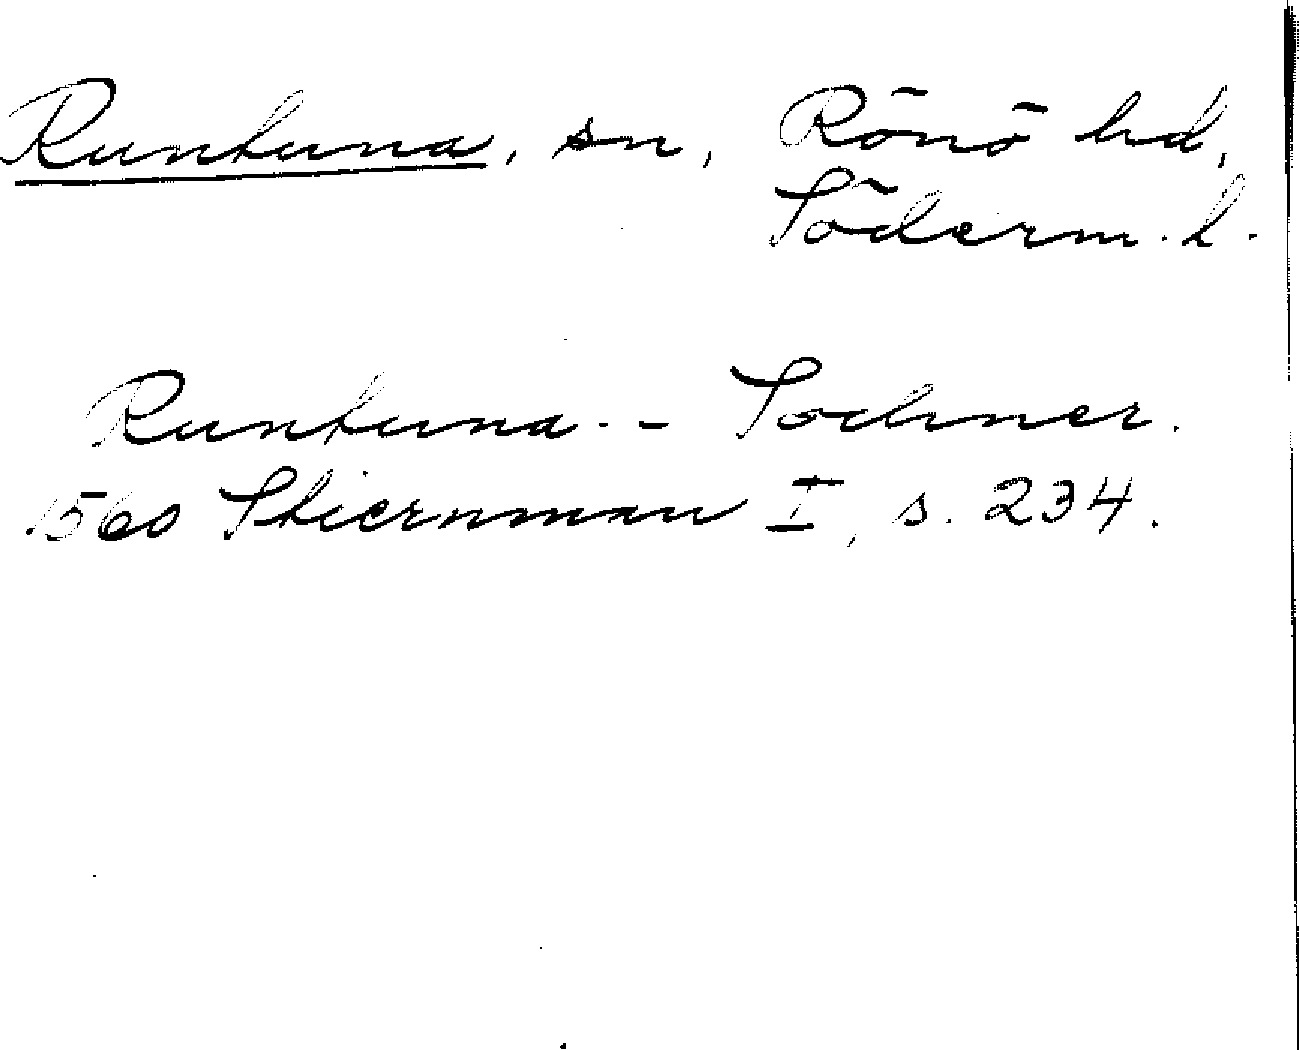 Runtuna, sn, Rönö hd,
Söderm. l.
Runtuna -- Sochner.
1560 Stiernman I, s. 234.